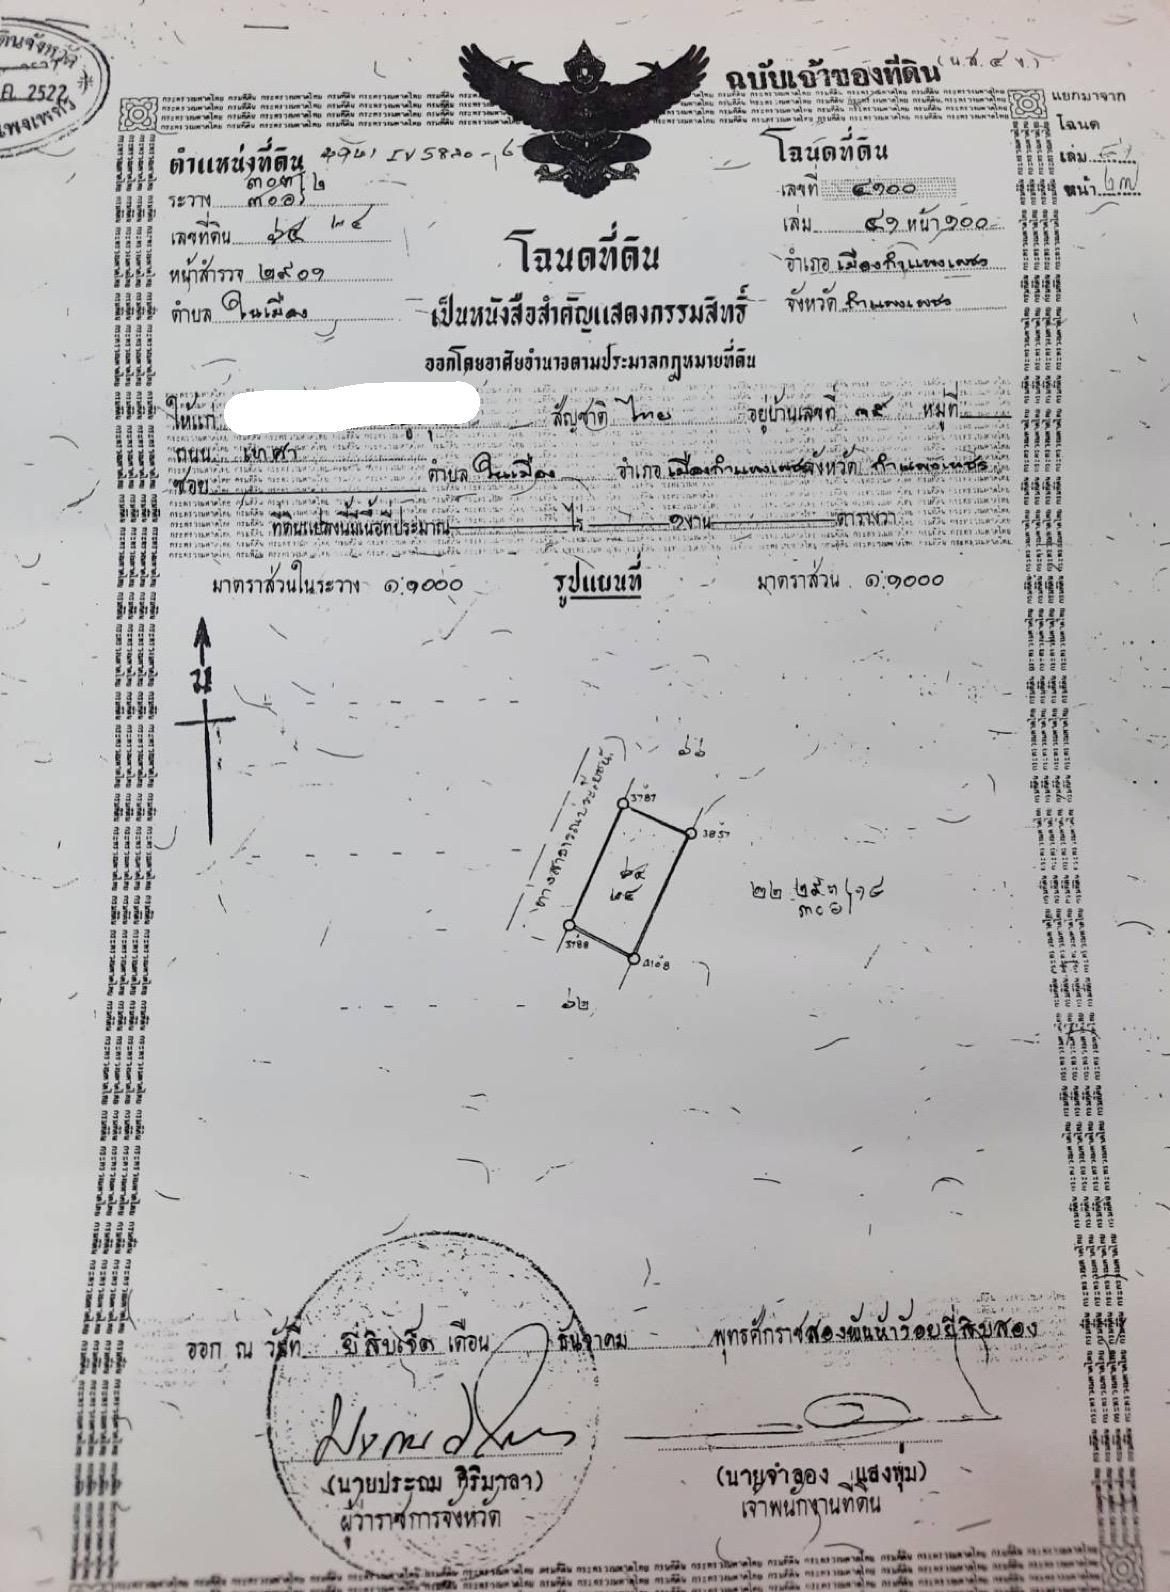 ฉบับเจ้าของที่ดิน (น.ส.๔ จ.)
แยกมาจาก
โฉนด
เล่ม
หน้า
ตำแหน่งที่ดิน
ระวาง
เลขที่ดิน ๖๔ ๒๔
หน้าสำรวจ ๒๙๐๑
ตำบล ในเมือง
โฉนดที่ดิน
เลขที่ ๔๑๐๐
เล่ม ๔๑ หน้า ๑๐๐
อำเภอ เมืองกำแพงเพชร
จังหวัด กำแพงเพชร
โฉนดที่ดิน
เป็นหนังสือสำคัญแสดงกรรมสิทธิ์
ออกโดยอาศัยอำนาจตามประมวลกฎหมายที่ดิน
ให้แก่ สัญชาติ ไทย อยู่บ้านเลขที่ ๓๕ หมู่ที่
ถนน เทศา
ซอย ตำบล ในเมือง อำเภอ เมืองกำแพงเพชร จังหวัด กำแพงเพชร
ที่ดินแปลงนี้มีเนื้อที่ประมาณ ไร่ ๑ งาน ตารางวา
มาตราส่วนในระวาง ๑:๑๐๐๐ รูปแผนที่ มาตราส่วน ๑:๑๐๐๐
น
ทางสาธารณประโยชน์
๖๖
๖๔
๒๔
๖๒
ออก ณ วันที่ ยี่สิบเจ็ด เดือน ธันวาคม พุทธศักราช สองพันห้าร้อยยี่สิบสอง
(นายประถม ศิริมาลา)
ผู้ว่าราชการจังหวัด
(นายจำลอง แสงพุ่ม)
เจ้าพนักงานที่ดิน